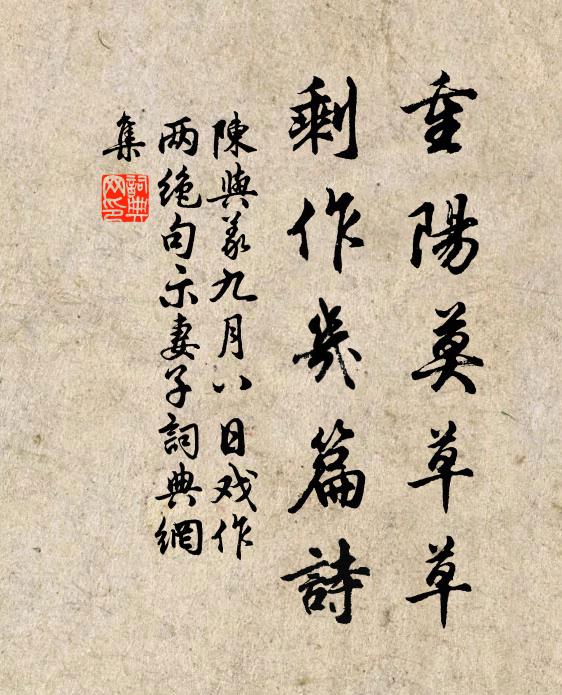 重陽莫草草
剩作幾篇詩
陳與義九月八日戏作
两绝句示妻子詞典網
集
詞典
网印